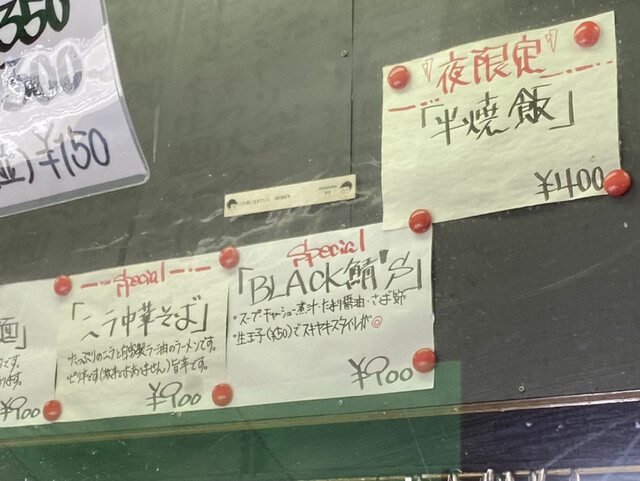 350
500
)¥150
夜限定
「半焼飯」
¥400
special
「BLACK鯖'S」
・スープ・チャーシュー煮汁・たまり醤油・さば節
・生玉子(¥50)でスキヤキスタイルが◎
¥900
special
「ニラ中華そば」
・たっぷりのニラと自家製ラー油のラーメンです。
・ピリ辛です(激辛ではありません)旨辛です。
¥900
」
です。
ます。
¥900